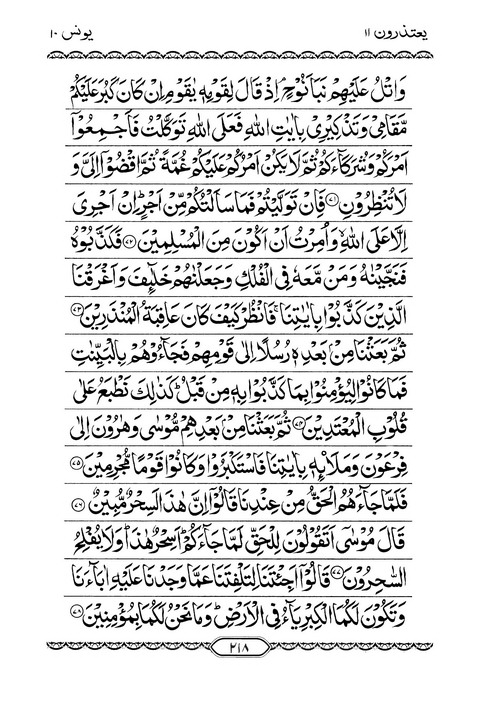 یعتذرون ۱۱
یونس ۱۰
وَاتْلُ عَلَيْهِمْ نَبَاَ نُوْحٍ ۘ اِذْ قَالَ لِقَوْمِهٖ يٰقَوْمِ اِنْ كَانَ كَبُرَ عَلَيْكُمْ
مَّقَامِيْ وَتَذْكِيْرِيْ بِاٰيٰتِ اللّٰهِ فَعَلَى اللّٰهِ تَوَكَّلْتُ فَاَجْمِعُوْۤا
اَمْرَكُمْ وَشُرَكَآءَكُمْ ثُمَّ لَا يَكُنْ اَمْرُكُمْ عَلَيْكُمْ غُمَّةً ثُمَّ اقْضُوْۤا اِلَيَّ وَ
لَا تُنْظِرُوْنِ ﴿۷۱﴾ فَاِنْ تَوَلَّيْتُمْ فَمَا سَاَلْتُكُمْ مِّنْ اَجْرٍ ؕ اِنْ اَجْرِيَ
اِلَّا عَلَى اللّٰهِ ۙ وَاُمِرْتُ اَنْ اَكُوْنَ مِنَ الْمُسْلِمِيْنَ ﴿۷۲﴾ فَكَذَّبُوْهُ
فَنَجَّيْنٰهُ وَمَنْ مَّعَهٗ فِي الْفُلْكِ وَجَعَلْنٰهُمْ خَلٰٓئِفَ وَاَغْرَقْنَا
الَّذِيْنَ كَذَّبُوْا بِاٰيٰتِنَا ۚ فَانْظُرْ كَيْفَ كَانَ عَاقِبَةُ الْمُنْذَرِيْنَ ﴿۷۳﴾
ثُمَّ بَعَثْنَا مِنْۢ بَعْدِهٖ رُسُلًا اِلٰى قَوْمِهِمْ فَجَآءُوْهُمْ بِالْبَيِّنٰتِ
فَمَا كَانُوْا لِيُؤْمِنُوْا بِمَا كَذَّبُوْا بِهٖ مِنْ قَبْلُ ؕ كَذٰلِكَ نَطْبَعُ عَلٰى
قُلُوْبِ الْمُعْتَدِيْنَ ﴿۷۴﴾ ثُمَّ بَعَثْنَا مِنْۢ بَعْدِهِمْ مُّوْسٰى وَهٰرُوْنَ اِلٰى
فِرْعَوْنَ وَمَلَا۟ئِهٖ بِاٰيٰتِنَا فَاسْتَكْبَرُوْا وَكَانُوْا قَوْمًا مُّجْرِمِيْنَ ﴿۷۵﴾
فَلَمَّا جَآءَهُمُ الْحَقُّ مِنْ عِنْدِنَا قَالُوْۤا اِنَّ هٰذَا لَسِحْرٌ مُّبِيْنٌ ﴿۷۶﴾
قَالَ مُوْسٰۤى اَتَقُوْلُوْنَ لِلْحَقِّ لَمَّا جَآءَكُمْ ؕ اَسِحْرٌ هٰذَا ؕ وَلَا يُفْلِحُ
السّٰحِرُوْنَ ﴿۷۷﴾ قَالُوْۤا اَجِئْتَنَا لِتَلْفِتَنَا عَمَّا وَجَدْنَا عَلَيْهِ اٰبَآءَنَا
وَتَكُوْنَ لَكُمَا الْكِبْرِيَآءُ فِي الْاَرْضِ ؕ وَمَا نَحْنُ لَكُمَا بِمُؤْمِنِيْنَ ﴿۷۸﴾
۲۱۸